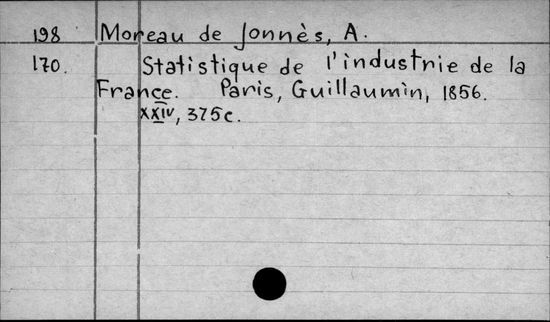 198 Moreau de Jonnès, A.
170. Statistique de l'industrie de la
France. Paris, Guillaumin, 1856.
XXIV, 375c.